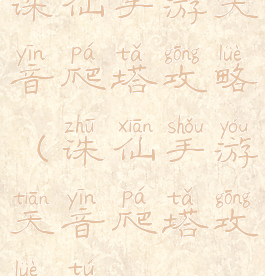 诛仙手游天
yīn pá tǎ gōng lüè
音爬塔攻略
zhū xiān shǒu yóu
（诛仙手游
tiān yīn pá tǎ gōng
天音爬塔攻
lüè tú